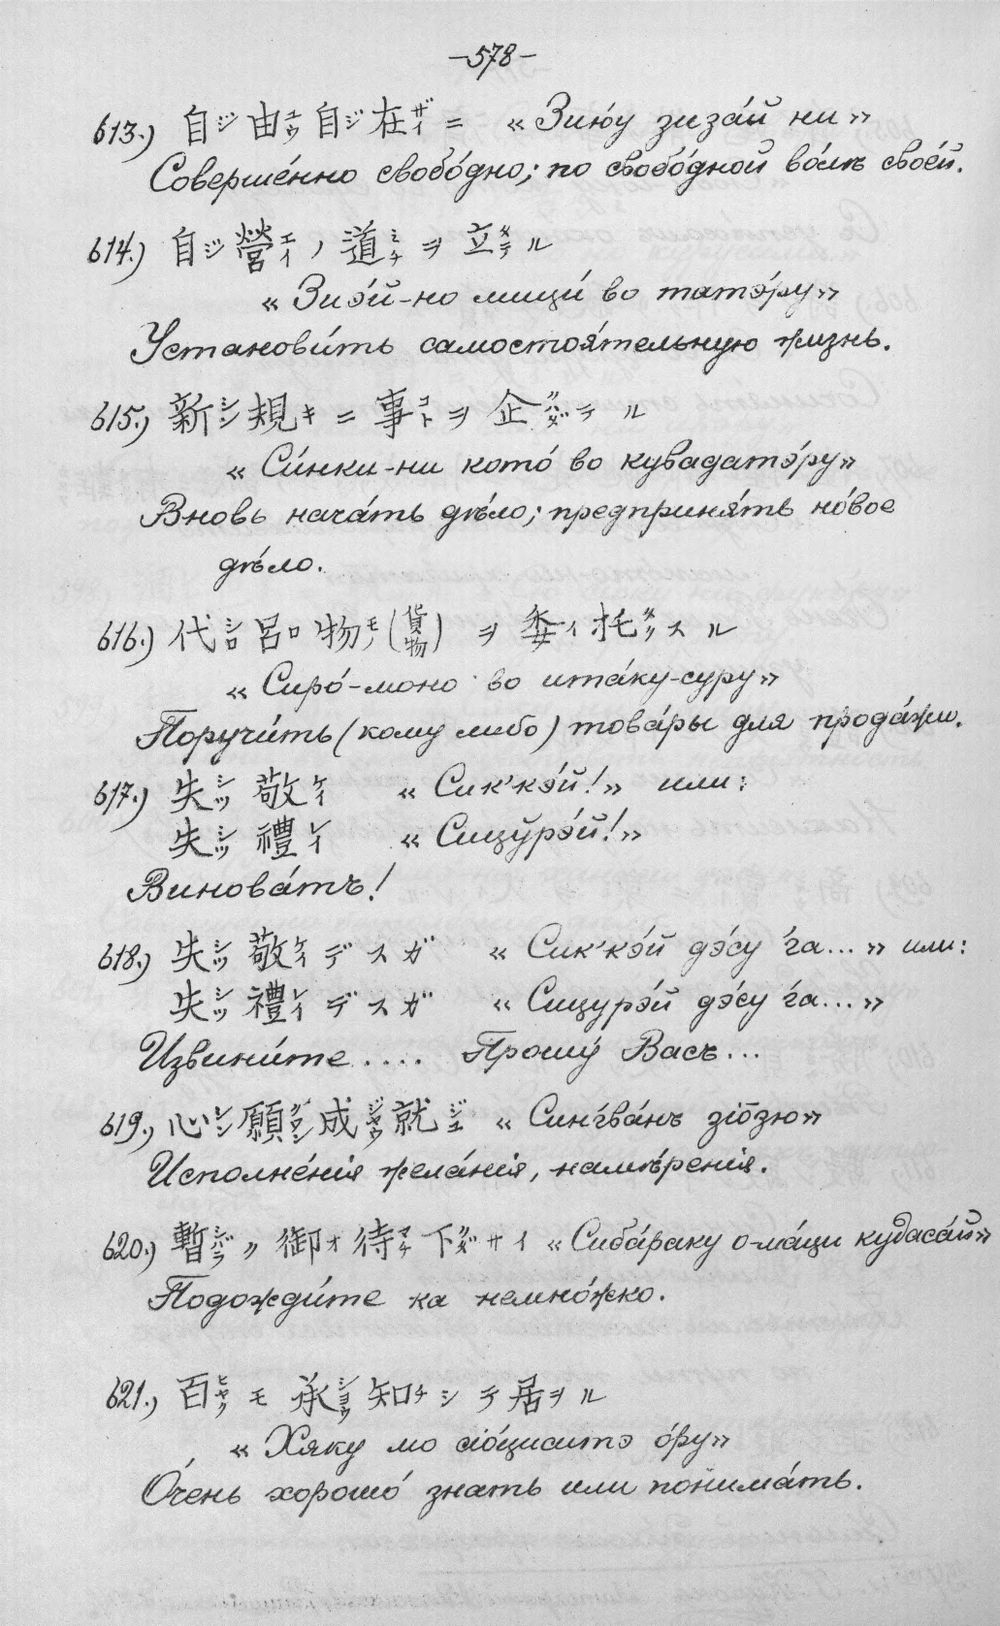 –578–
613.) 自ジ由ユウ自ジ在ザイ = « Зию́у зиза́й ни »
Соверше́нно свобо́дно; по свобо́дной во́лѣ свое́й.
614.) 自ジ營エイノ道ミチヲ立タテル
« Зиэ́й-но мици́ во татэ́ру »
Установи́ть самостоя́тельную жизнь.
615.) 新シン規キニ事コトヲ企クハダテル
« Си́нки-ни кото́ во кувадатэ́ру »
Вновь нача́ть дѣло; предприня́ть но́вое
дѣло.
616.) 代シロ呂ロ物モノ(貨物) ヲ委イ托タクスル
« Сиро́-моно во ита́ку-суру »
Поручи́ть (кому либо) това́ры для прода́жи.
617.) 失シツ敬ケイ « Сик'кэ́й! » или:
失シツ禮レイ « Сицӯрэ́й! »
Винова́тъ!
618.) 失シツ敬ケイデスガ « Сик'кэ́й дэ́су ́га... » или:
失シツ禮レイデスガ « Сицурэ́й дэ́су ́га... »
Извини́те .... Прошу́ Васъ...
619.) 心シン願グワン成ジヤウ就ジユ « Синѓва́нъ зіо̄зю »
Исполне́нія жела́нія, намѣ́ренія.
620.) 暫シバラク御オ待マチ下クダサイ « Сиба́раку о-ма́ци кудаса́й »
Подожди́те ка немно́жко.
621.) 百ヒヤクモ承シヨウ知チシテ居ヲル
« Хяку мо сіо́циситэ о́ру »
О́чень хорошо́ знать или понима́ть.